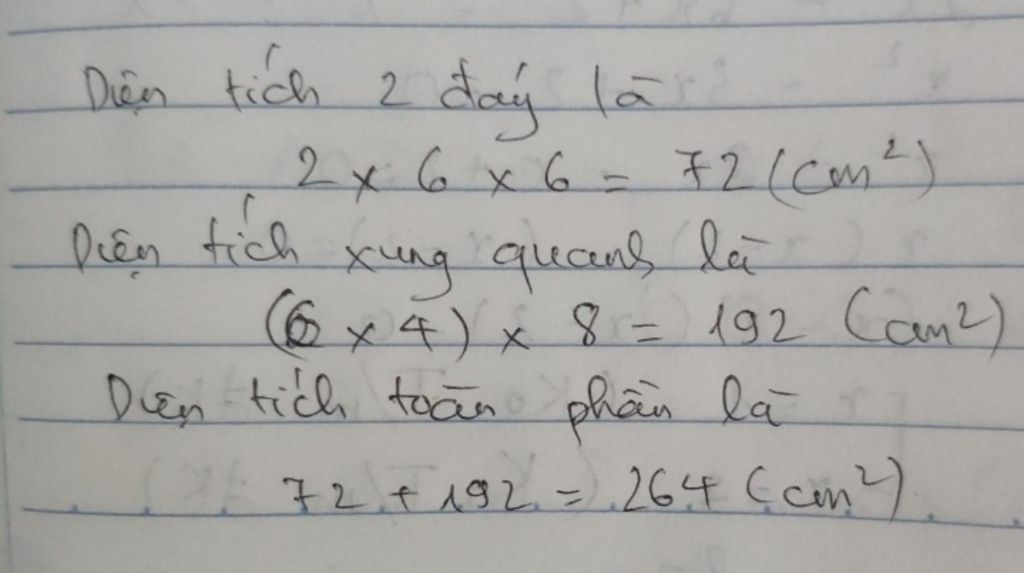 Diện tích 2 đáy là
2 x 6 x 6 = 72 (cm²)
Diện tích xung quanh là
(6 x 4) x 8 = 192 (cm²)
Diện tích toàn phần là
72 + 192 = 264 (cm²)